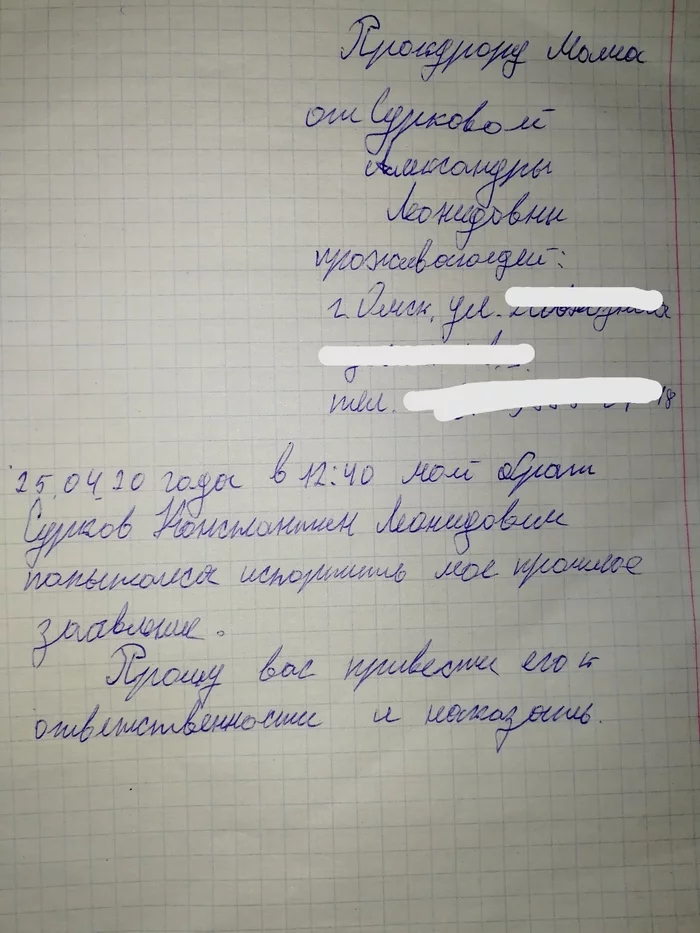 Прокурору Мама
от Сурковой
Александры
Леонидовны
проживающей:
г. Омск, ул.
тел. 18
25.04.20 года в 12:40 мой брат
Сурков Константин Леонидович
попытался испортить мое прошлое
заявление.
Прошу вас привести его к
ответственности и наказать.